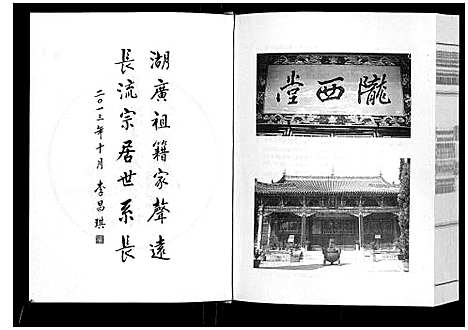 隴西堂
湖廣祖籍家聲遠
長流宗居世系長
二〇一三年十月 李昌琪